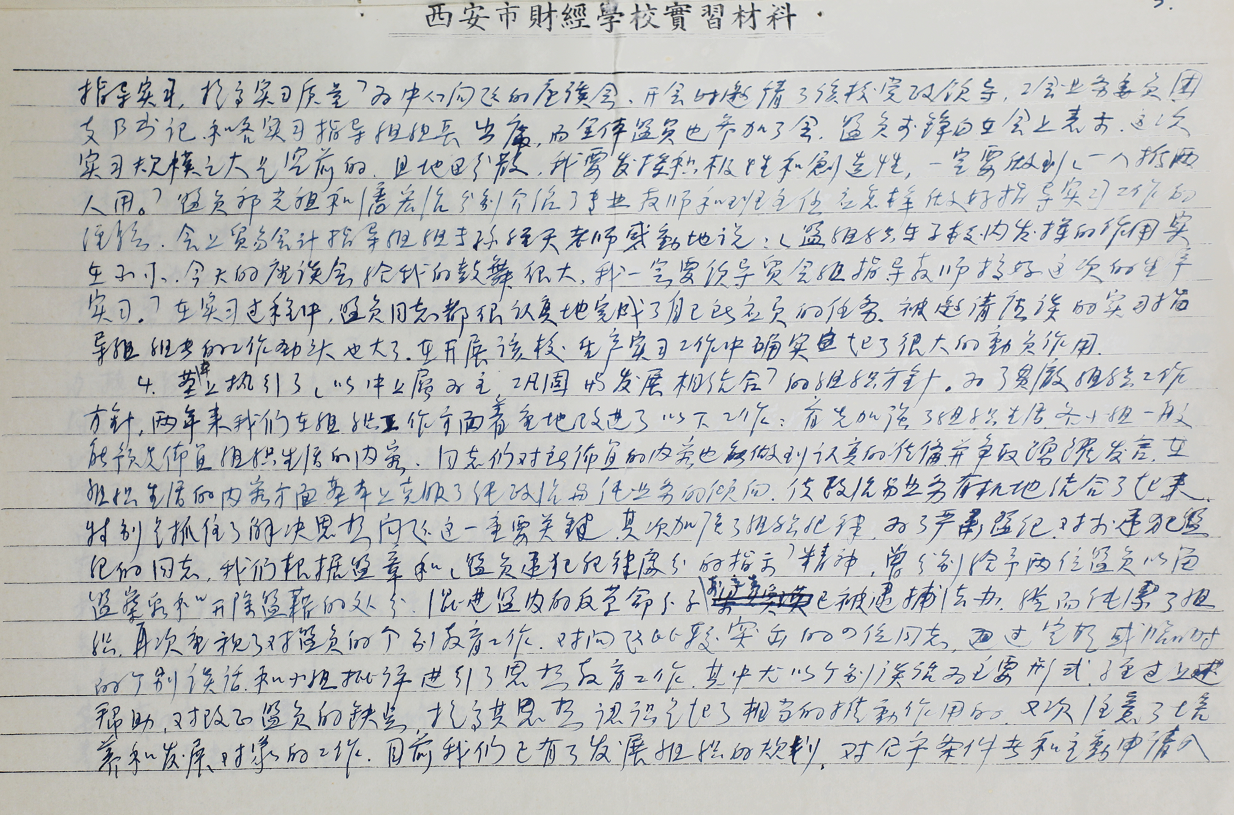 ·西安市財經學校實習材料·
指导实习,提高实习质量"为中心问题的座谈会,开会时邀请了该校党政领导,工会业务委员团
支部书记,和各实习指导组组长出席,而全体盟员也参加了会,盟员 在会上表示,这次
实习规模之大是空前的,且地区分散,我要发挥积极性和創造性,一定要做到"一人抵两
人用。"盟员祁 和潘 分别介绍了专业教师和班主任应怎样做好指导实习工作的
会上贸易会计指导组组长孙经天老师感動地说:"盟组织在学校内发挥的作用实
在不小,今天的座谈会给我的鼓舞很大,我一定要领导贸会组指导教师搞好这次的生产
实习。"在实习过程中,盟员同志都很认真地完成了自己所应负的任务,被邀请座谈的实习指
导组组长的工作劲头也大了,在开展该校生产实习工作中确实起了很大的動员作用.
4.基本上执行了"以中上层为主巩固与发展相结合"的组织方针。为了贯徹组织工作
方針,两年来我们在组织工作方面着重地改进了以下工作:首先加強了组织生活各小组一般
能预先佈置组织生活的内容,同志们对所佈置的内容也能做到认真的准備并争取踴躍发言,在
组织生活的内容方面基本上克服了纯政治与纯业务的倾向,使政治与业务有机地结合了起来,
特别是抓住了解决思想问题这一重要关键,其次加强了组织纪律,为了严肃盟纪,对于违犯盟
纪的同志,我们根据盟章和"盟员违犯纪律处分的指示"精神,曾分别给予两位盟员以留
盟察看和"开除盟籍的处分,(混进盟内的反革命分子 已被逮捕法办,从而纯潔了组
织,再次重視了对盟员的个别教育工作,对问题比较突出的四位同志,通过定期或临时
的个别谈话,和小组批评进行了思想教育工作,其中尤以个别谈话为主要形式,经过上述
帮助,对改正盟员的缺点,提高其思想认识是起了相当的推動作用的,又次注意了培
养和发展对象的工作,目前我们已有了发展组织的规划,对合乎条件者和主動申请入